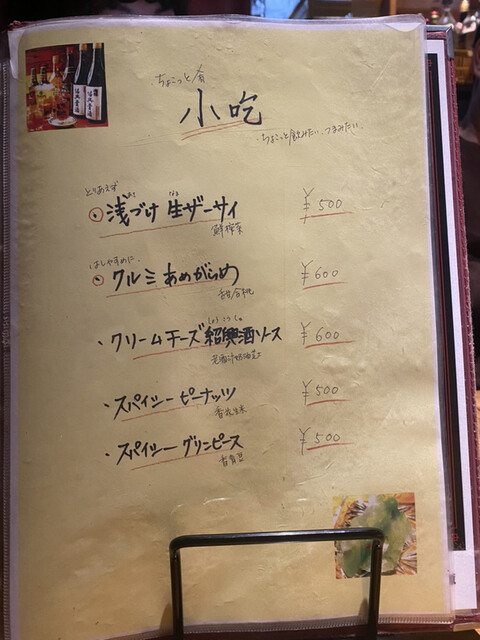 ちょこっと
小吃
・ちょこっと飲みたい、つまみたい
とりあえず
浅づけ 生ザーサイ ¥500
鮮榨菜
はしやすめに
クルミあめがらめ ¥600
合桃
しょうこうしゅ
・クリームチーズ紹興酒ソース ¥600
・スパイシーピーナッツ ¥500
香花生米
・スパイシーグリンピース ¥500
香青豆